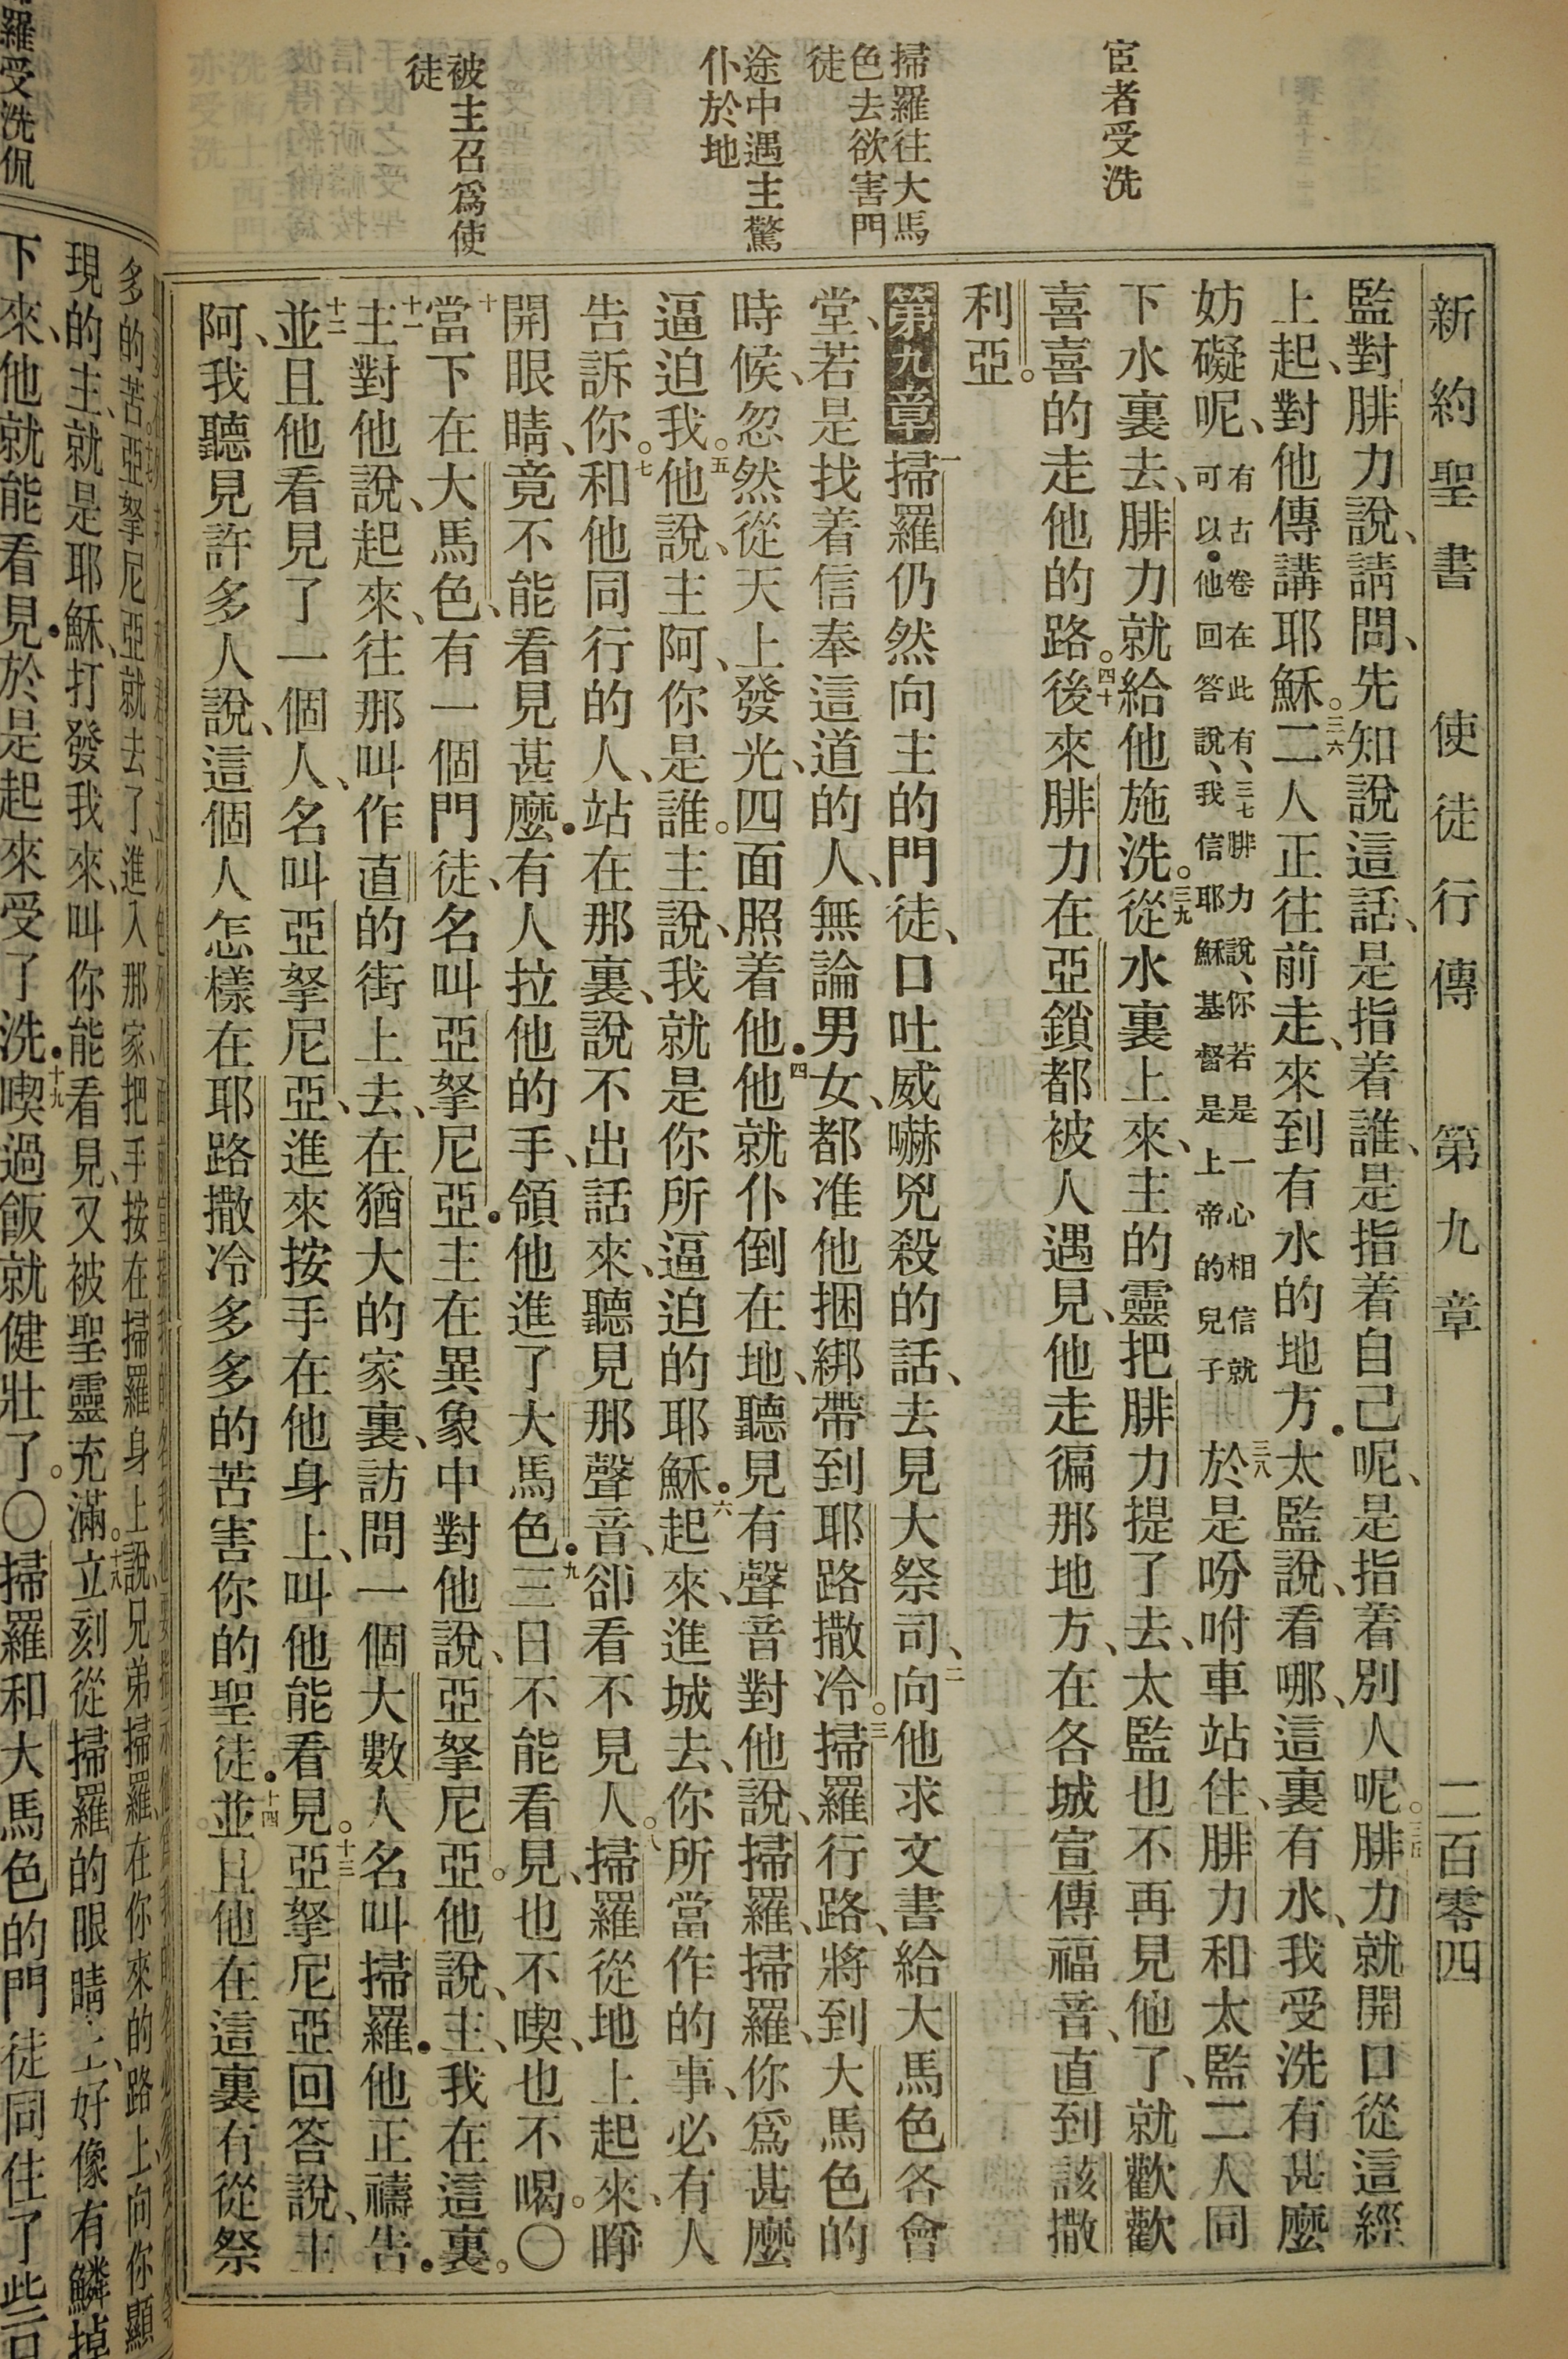 新約聖書 使徒行傳 第九章 二百零四
宦者受洗
掃羅往大馬
色去欲害門
徒
途中遇主驚
仆於地
被主召爲使
徒
監對腓力說、請問、先知說這話、是指着誰、是指着自己呢、是指着別人呢。三五腓力就開口從這經
上起、對他傳講耶穌。三六二人正往前走、來到有水的地方．太監說、看哪、這裏有水、我受洗有甚麼
妨礙呢、有古卷在此有、三七腓力說、你若是一心相信就可以．他回答說、我信耶穌基督是上帝的兒子三八於是吩咐車站住、腓力和太監二人同
下水裏去、腓力就給他施洗。三九從水裏上來、主的靈把腓力提了去、太監也不再見他了、就歡歡
喜喜的走他的路。四十後來腓力在亞鎖都被人遇見、他走徧那地方、在各城宣傳福音、直到該撒
利亞。
第九章一掃羅仍然向主的門徒、口吐威嚇兇殺的話、去見大祭司、二向他求文書給大馬色各會
堂、若是找着信奉這道的人、無論男女、都准他捆綁帶到耶路撒冷。三掃羅行路、將到大馬色的
時候、忽然從天上發光、四面照着他．四他就仆倒在地、聽見有聲音對他說、掃羅、掃羅、你爲甚麼
逼迫我。五他說、主阿、你是誰。主說、我就是你所逼迫的耶穌．六起來、進城去、你所當作的事、必有人
告訴你。七和他同行的人、站在那裏、說不出話來、聽見那聲音、卻看不見人。八掃羅從地上起來、睜
開眼睛、竟不能看見甚麼．有人拉他的手、領他進了大馬色．九三日不能看見、也不喫、也不喝。〇
十當下在大馬色、有一個門徒、名叫亞拏尼亞．主在異象中對他說、亞拏尼亞。他說、主、我在這裏。
十一主對他說、起來、往那叫作直的街上去、在猶大的家裏、訪問一個大數人名叫掃羅．他正禱告．
十二並且他看見了一個人、名叫亞拏尼亞、進來按手在他身上、叫他能看見。十三亞拏尼亞回答說、主
阿、我聽見許多人說、這個人怎樣在耶路撒冷多多的苦害你的聖徒．十四並且他在這裏有從祭
羅受洗侃
多的苦。亞拏尼亞就去了、進入那家、把手按在掃羅身上說、兄弟掃羅、在你來的路上、向你顯
現的主、就是耶穌、打發我來、叫你能看見、又被聖靈充滿。十八立刻從掃羅的眼睛上、好像有鱗掉
下來、他就能看見．於是起來受了洗．十九喫過飯就健壯了。〇掃羅和大馬色的門徒同住了些日